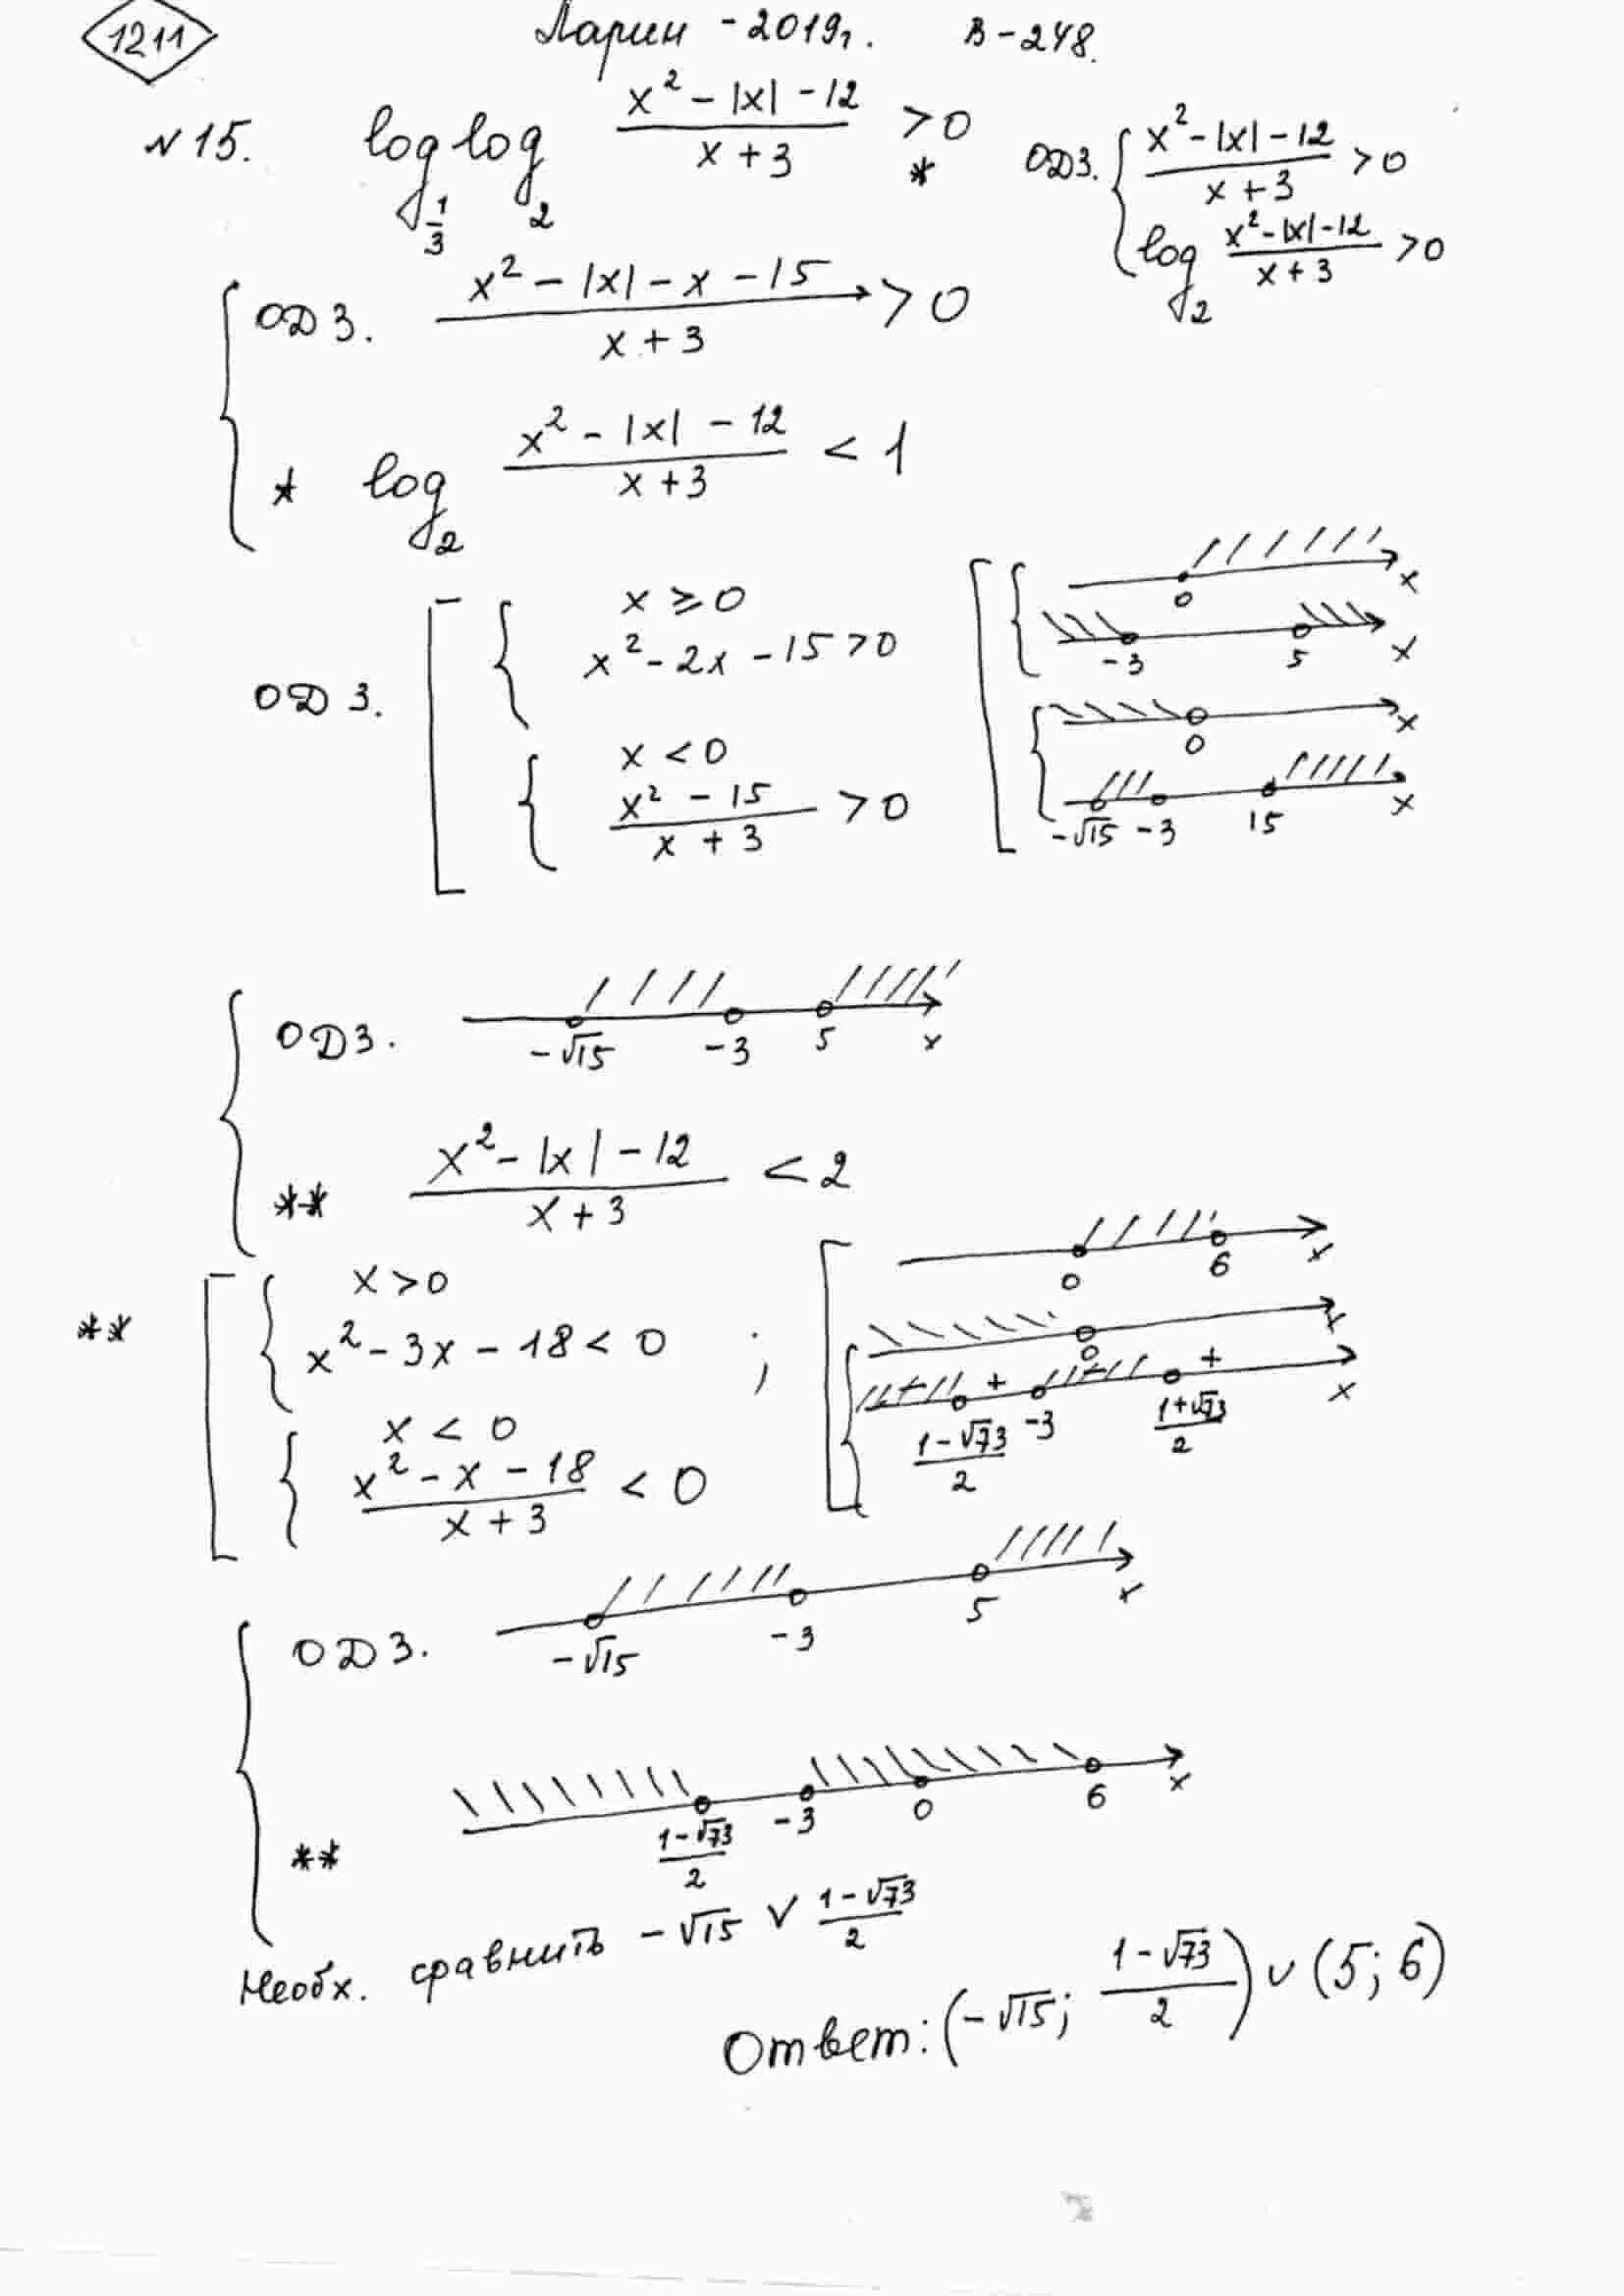 1211 Ларин - 2019г. В-248.
№15. log_{1/3} log_2 (x² - |x| - 12)/(x + 3) > 0 *
ОДЗ. { (x² - |x| - 12)/(x + 3) > 0
log_2 (x² - |x| - 12)/(x + 3) > 0
{ ОДЗ. (x² - |x| - x - 15)/(x + 3) > 0
* log_2 (x² - |x| - 12)/(x + 3) < 1
ОДЗ. [ { x ≥ 0
x² - 2x - 15 > 0
{ x < 0
(x² - 15)/(x + 3) > 0
[ { 0 x
-3 5 x
{ 0 x
-√15 -3 15 x
{ ОДЗ. -√15 -3 5 x
** (x² - |x| - 12)/(x + 3) < 2
** [ { x > 0
x² - 3x - 18 < 0 ;
{ x < 0
(x² - x - 18)/(x + 3) < 0
[ 0 6 x
{ 0 x
+ + (1-√73)/2 -3 (1+√73)/2 x
{ ОДЗ. -√15 -3 5 x
** (1-√73)/2 -3 0 6 x
Необх. сравнить -√15 ∨ (1-√73)/2
Ответ: (-√15; (1-√73)/2) ∪ (5; 6)